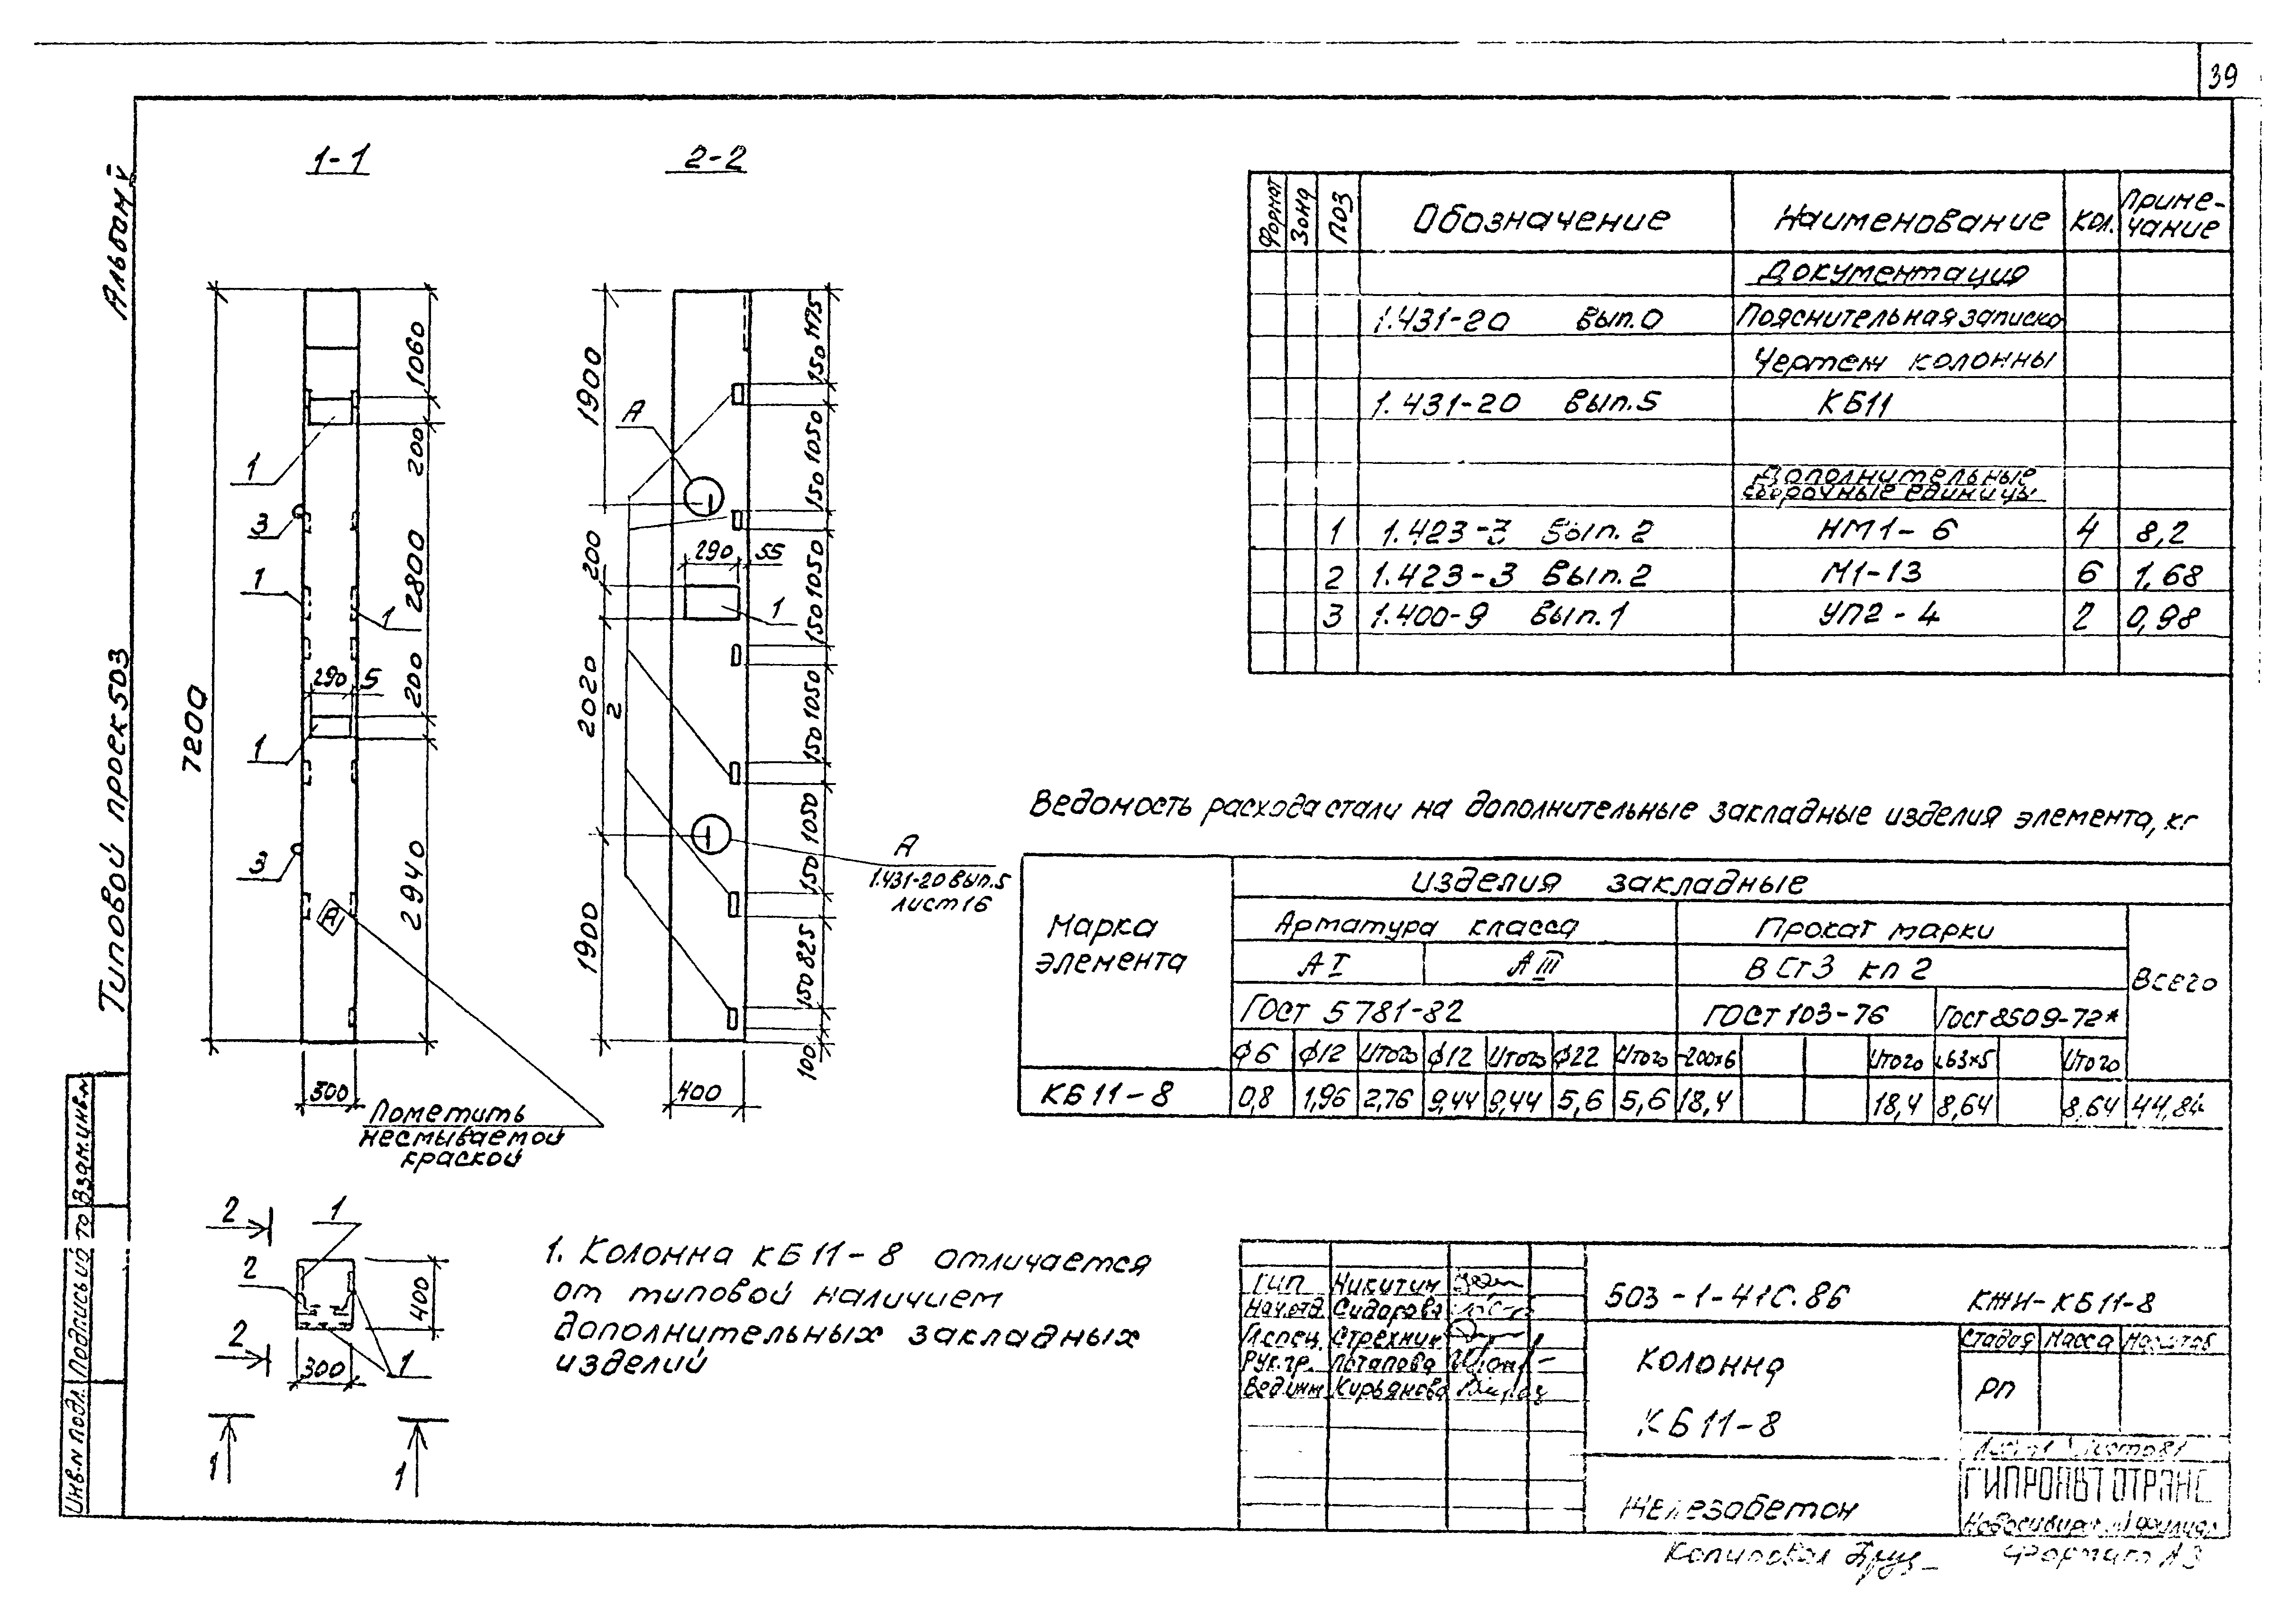 39
Альбом V
Типовой проек 503
Инв.N подл.
Подпись и
Взам.инв.N
1-1
2-2
7200
1060
200
2800
200
2940
1
3
1
1
290
5
1
3
А
300
Пометить
несмываемой
краской
1900
200
2020
2
1900
А
290
55
1
1175
150
1050
150
1050
150
1050
150
1050
150
825
150
100
А
1.431-20 вып.5
лист 16
400
2
1
2
2
400
300
1
1
1
1. Колонна КБ11-8 отличается
от типовой наличием
дополнительных закладных
изделий
Формат Зона Поз Обозначение Наименование Кол. Приме-
чание
Документация
1.431-20 Вып.0 Пояснительная записка
Чертеж колонны
1.431-20 Вып.5 КБ11
Дополнительные
сборочные единицы
1 1.423-3 Вып.2 НМ1-6 4 8,2
2 1.423-3 Вып.2 М1-13 6 1,68
3 1.400-9 Вып.1 УП2-4 2 0,98
Ведомость расхода стали на дополнительные закладные изделия элемента, кг
Марка
элемента
Изделия закладные
Арматура класса Прокат марки
А I А III В Ст3 кп 2 Всего
Гост 5781-82 ГОСТ 103-76 Гост 8509-72*
ф6 ф12 Итого ф12 Итого ф22 Итого -200х6 Итого L63х5 Итого
КБ11-8 0,8 1,96 2,76 9,44 9,44 5,6 5,6 18,4 18,4 8,64 8,64 44,84
ГИП Никитин
Нач.отд. Сидорова
Гл.спец. Стрехнин
Рук.гр. Потапова
Вед.инж Кирьянова
503-1-41С.86 КЖИ-КБ11-8
Колонна
КБ11-8
Стадия Масса Масштаб
РП
Лист 1 Листов 1
Железобетон
ГИПРОАВТОТРАНС
Новосибирский филиал
Копировал
Формат А3